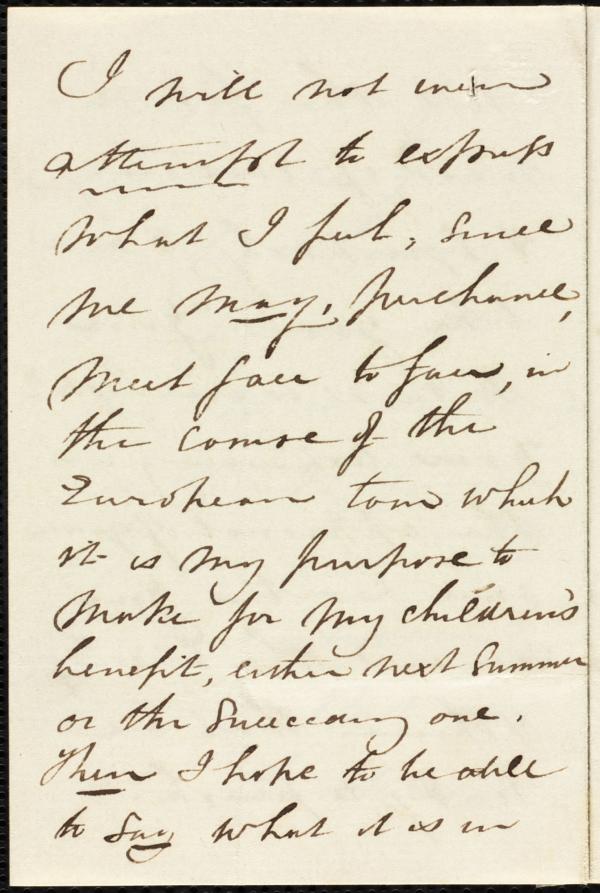 I will not even
attempt to express
what I feel, since
we may, perchance,
meet face to face, in
the course of the
European tour which
it is my purpose to
make for my children's
benefit, either next Summer
or the succeeding one.
Then I hope to be able
to say what it is in